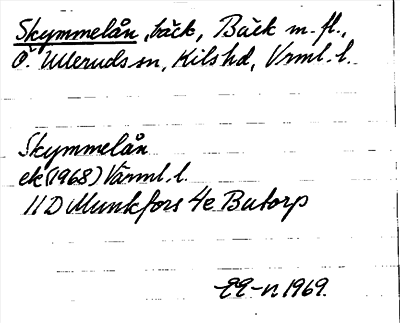 Skymmelån, bäck, Bäck m. fl.,
Ö. Ulleruds sn, Kils hd, Vrml. l.
Skymmelån
ek (1968) Värml. l.
11D Munkfors 4e Butorp
1969.